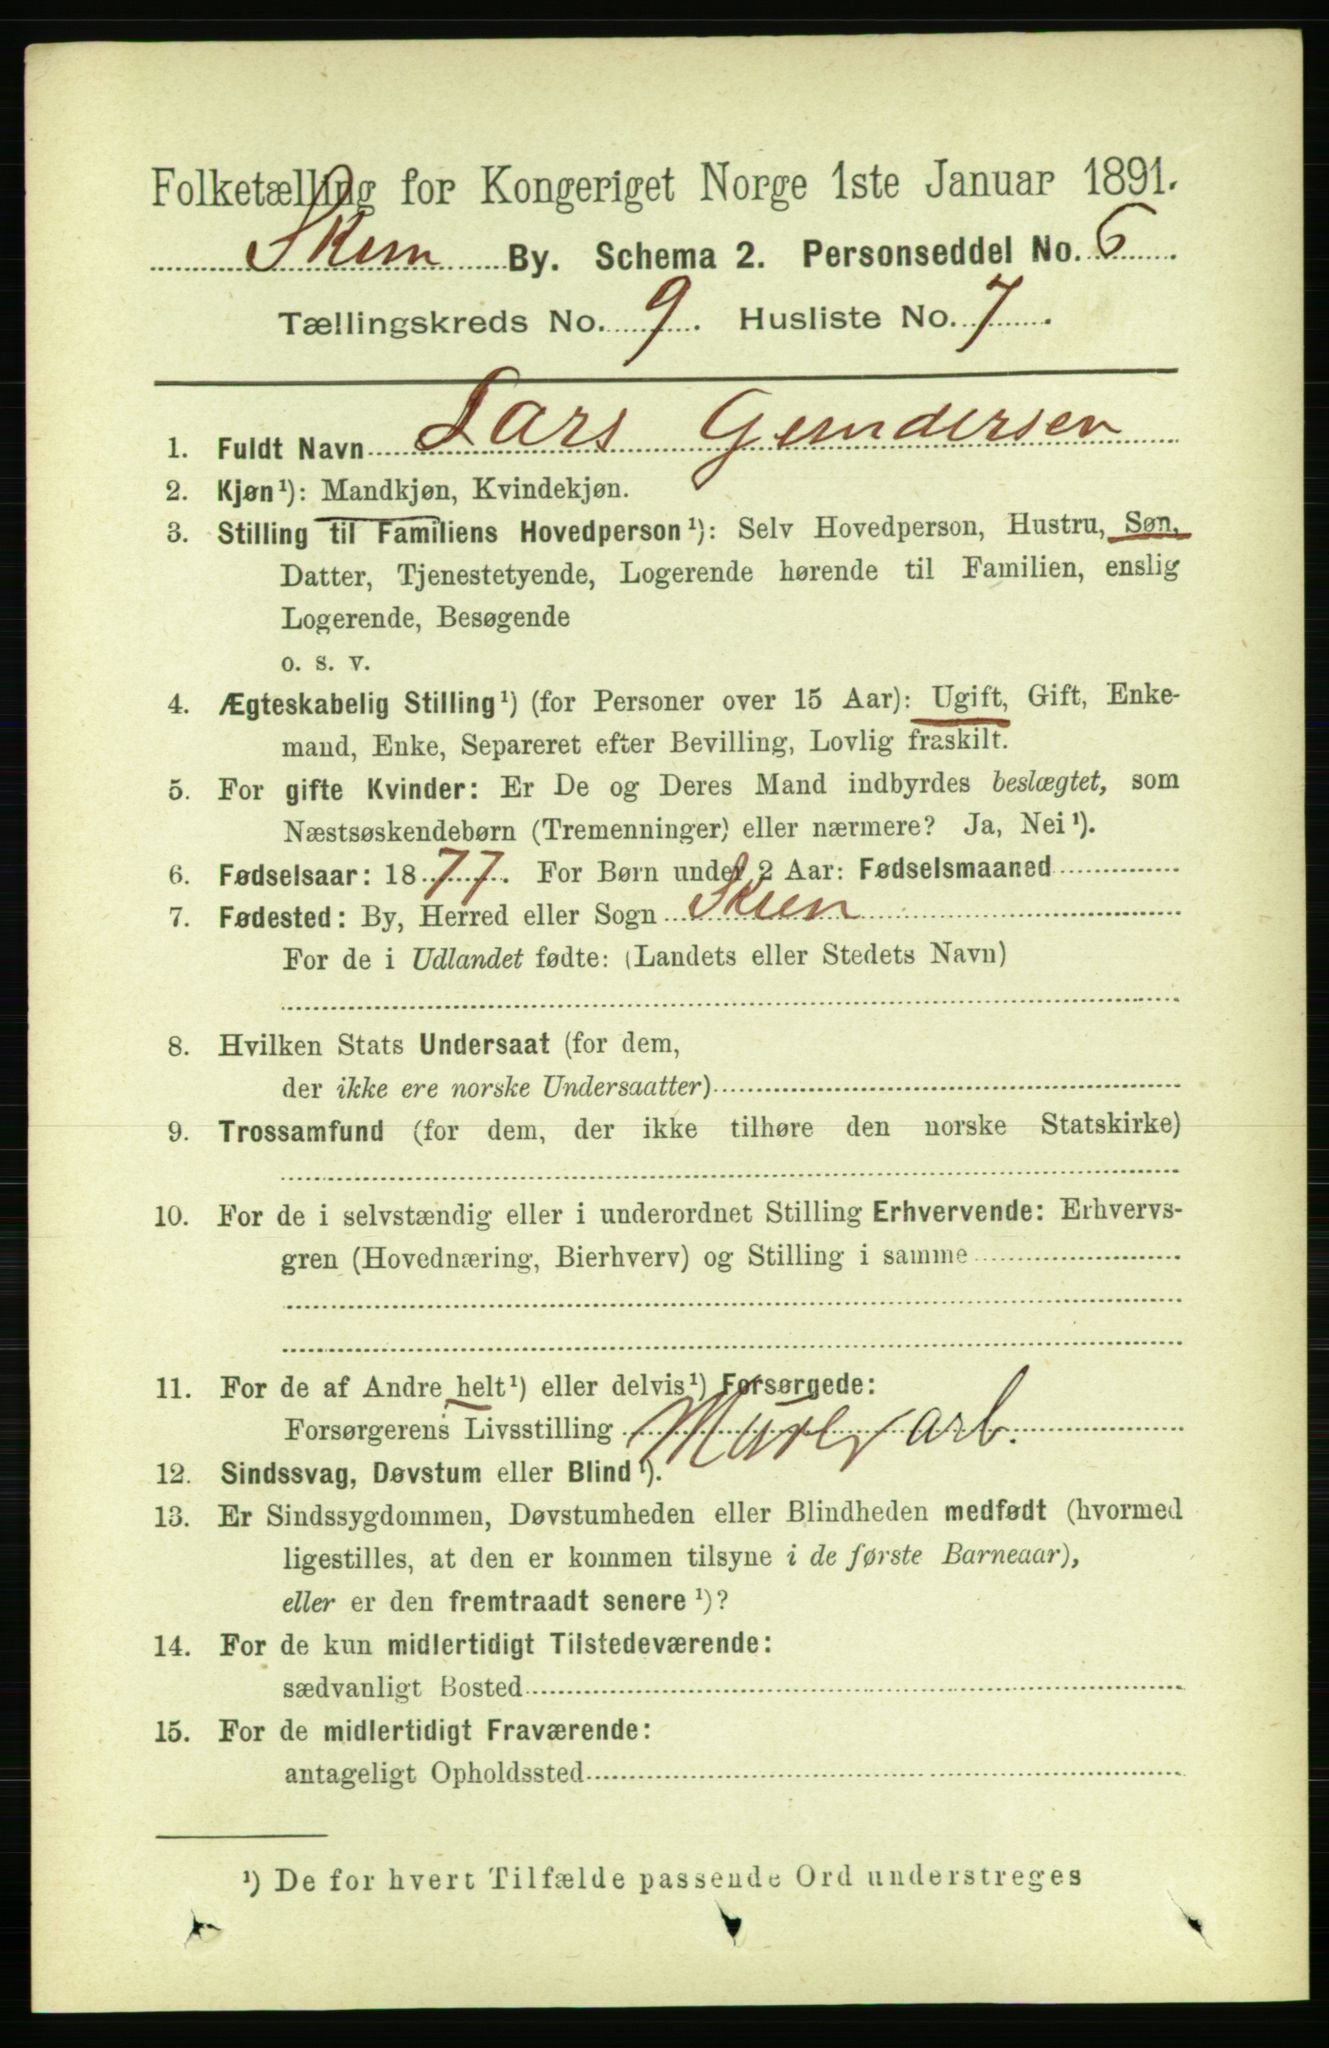 Folketælling for Kongeriget Norge 1ste Januar 1891.
Skien By. Schema 2. Personseddel No. 6.
Tællingskreds No. 9. Husliste No. 7.
1. Fuldt Navn Lars Gundersen
2. Kjøn¹): Mandkjøn, Kvindekjøn.
3. Stilling til Familiens Hovedperson¹): Selv Hovedperson, Hustru, Søn,
Datter, Tjenestetyende, Logerende hørende til Familien, enslig
Logerende, Besøgende
o. s. v.
4. Ægteskabelig Stilling¹) (for Personer over 15 Aar): Ugift, Gift, Enke-
mand, Enke, Separeret efter Bevilling, Lovlig fraskilt.
5. For gifte Kvinder: Er De og Deres Mand indbyrdes beslægtet, som
Næstsøskendebørn (Tremenninger) eller nærmere? Ja, Nei¹).
6. Fødselsaar: 1877. For Børn under 2 Aar: Fødselsmaaned
7. Fødested: By, Herred eller Sogn Skien
For de i Udlandet fødte: (Landets eller Stedets Navn)
8. Hvilken Stats Undersaat (for dem,
der ikke ere norske Undersaatter)
9. Trossamfund (for dem, der ikke tilhøre den norske Statskirke)
10. For de i selvstændig eller i underordnet Stilling Erhvervende: Erhvervs-
gren (Hovednæring, Bierhverv) og Stilling i samme
11. For de af Andre helt¹) eller delvis¹) Forsørgede:
Forsørgerens Livsstilling Murerarb.
12. Sindssvag, Døvstum eller Blind¹).
13. Er Sindssygdommen, Døvstumheden eller Blindheden medfødt (hvormed
ligestilles, at den er kommen tilsyne i de første Barneaar),
eller er den fremtraadt senere¹)?
14. For de kun midlertidigt Tilstedeværende:
sædvanligt Bosted
15. For de midlertidigt Fraværende:
antageligt Opholdssted
¹) De for hvert Tilfælde passende Ord understreges